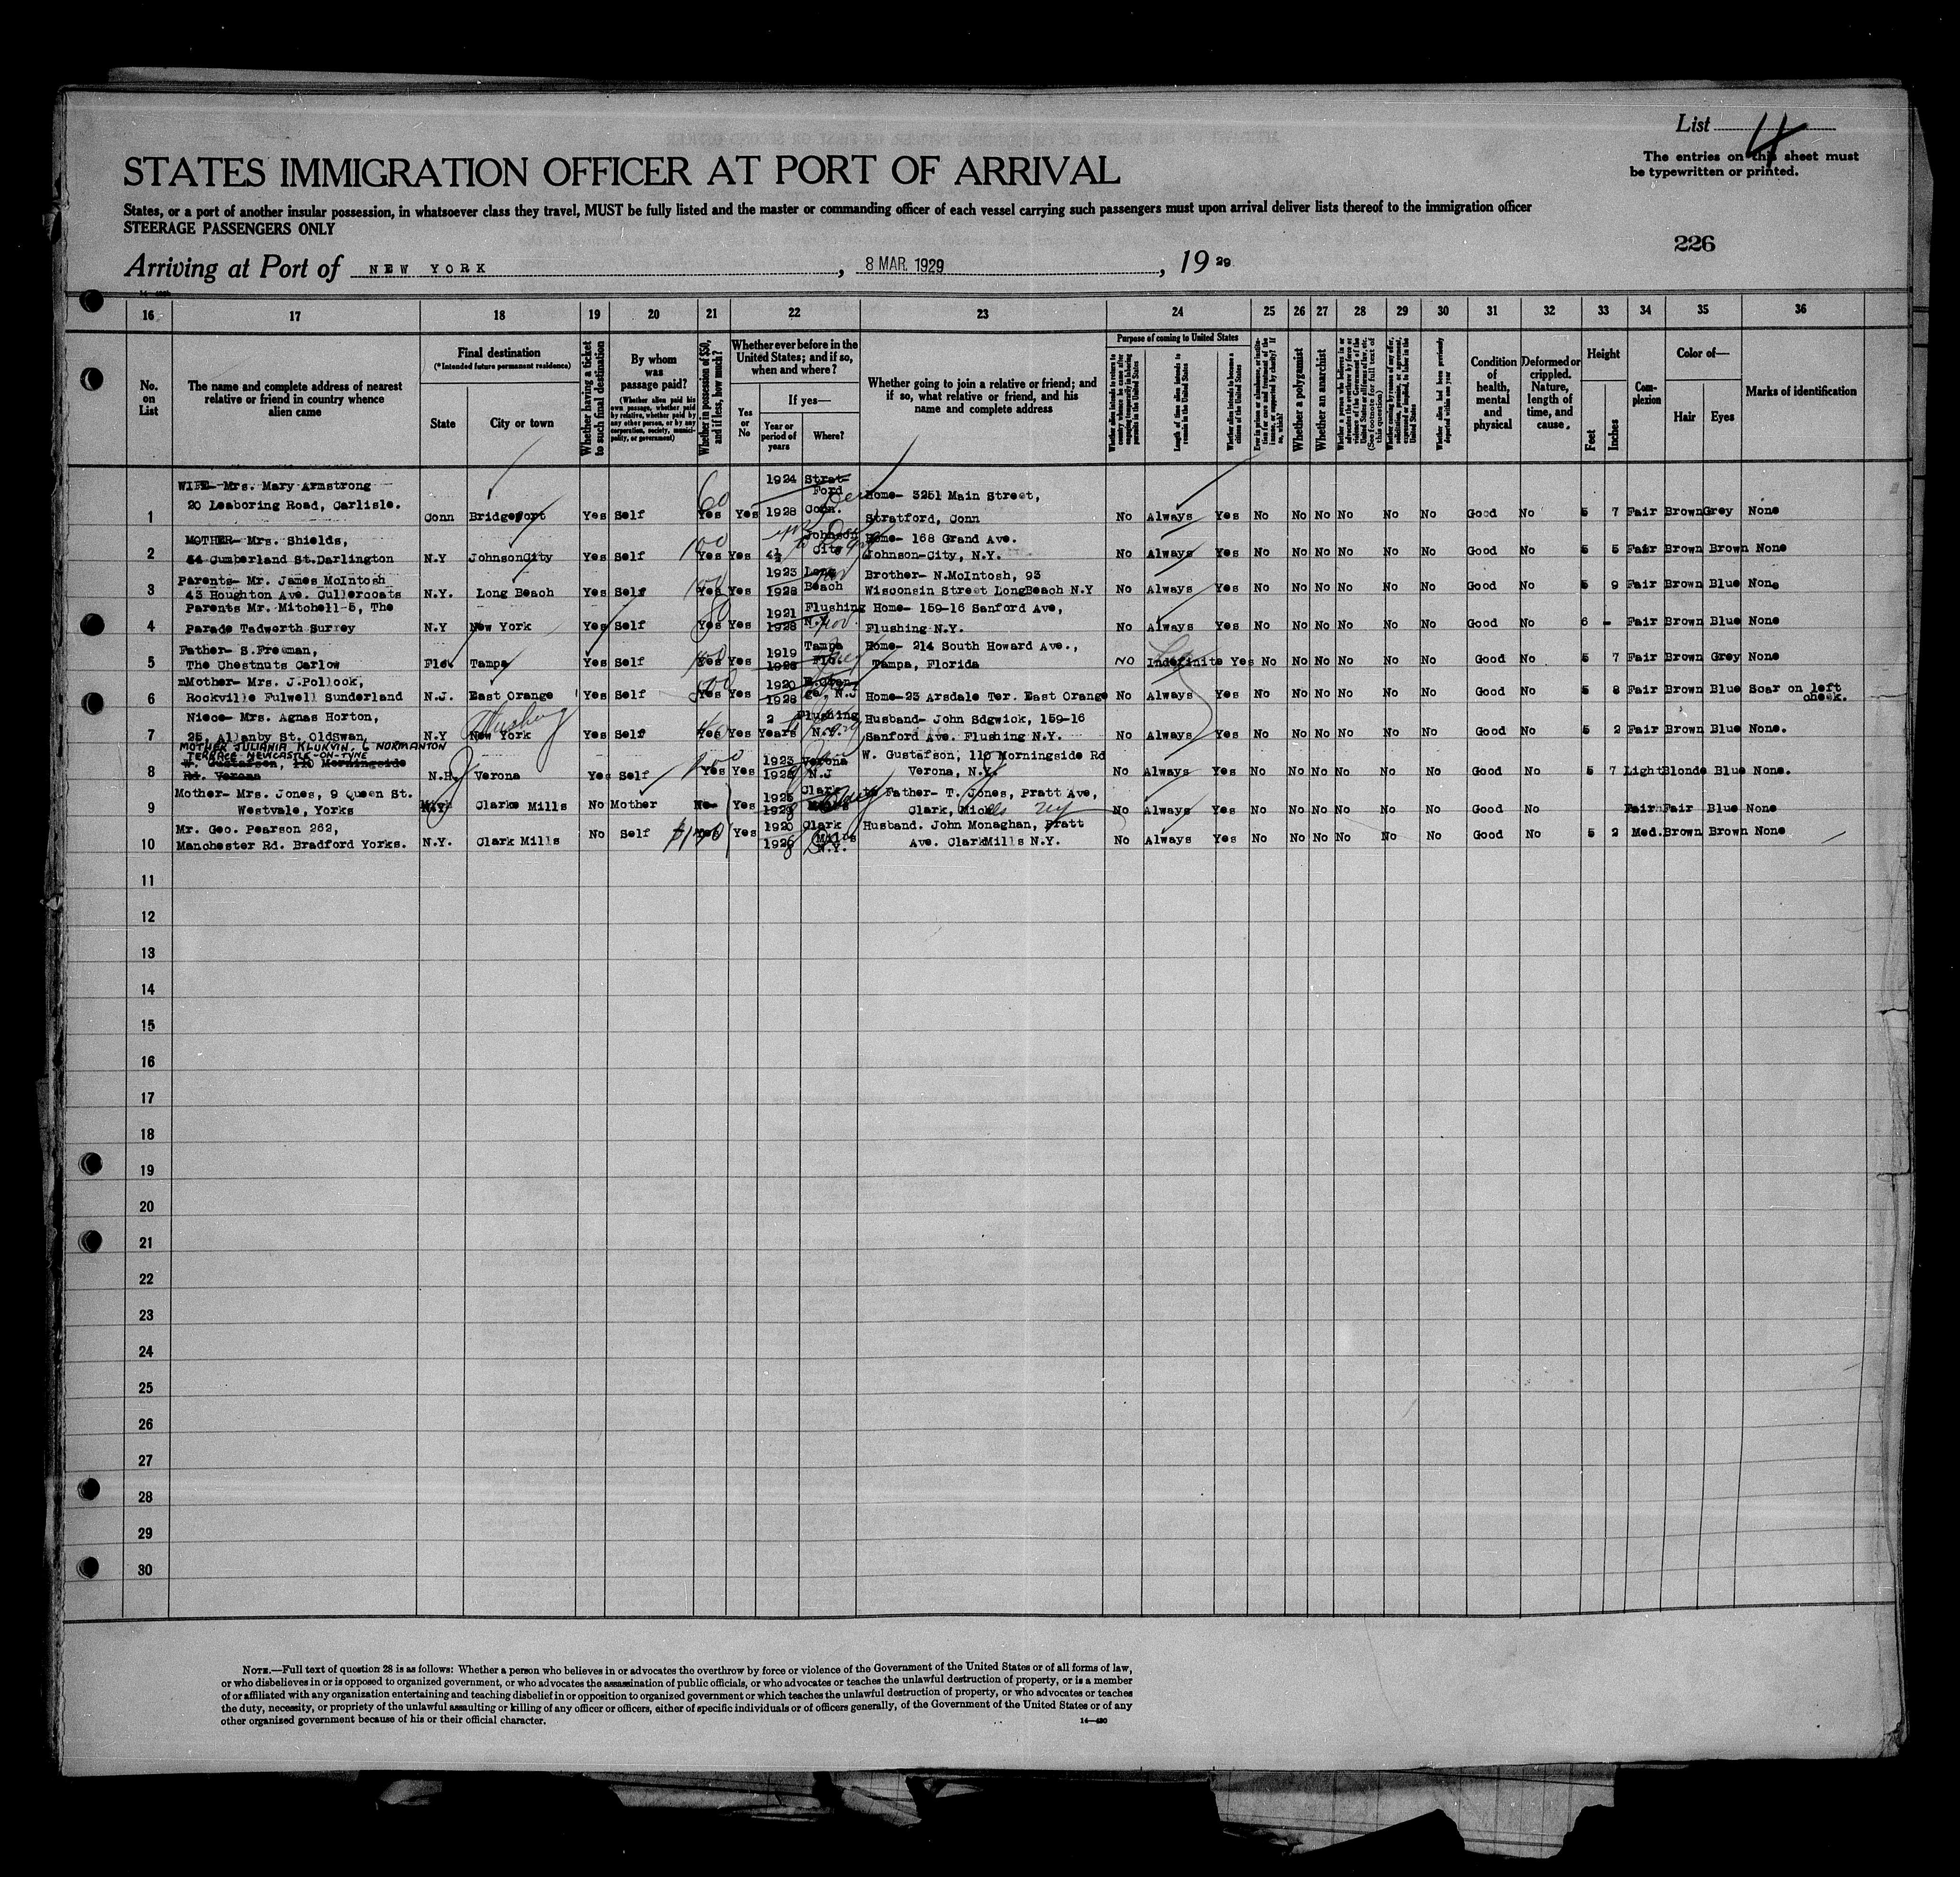 List 4
The entries on this sheet must
be typewritten or printed.
STATES IMMIGRATION OFFICER AT PORT OF ARRIVAL
States, or a port of another insular possession, in whatsoever class they travel, MUST be fully listed and the master or commanding officer of each vessel carrying such passengers must upon arrival deliver lists thereof to the immigration officer
STEERAGE PASSENGERS ONLY
226
Arriving at Port of NEW YORK, 8 MAR. 1929, 19 29
16 17 18 19 20 21 22 23 24 25 26 27 28 29 30 31 32 33 34 35 36
No. on List
The name and complete address of nearest relative or friend in country whence alien came
Final destination
(*Intended future permanent residence)
State
City or town
Whether having a ticket to such final destination
By whom was passage paid?
(Whether alien paid his own passage, whether paid by relative, whether paid by any other person, or by any corporation, society, municipality, or government)
Whether in possession of $50, and if less, how much?
Whether ever before in the United States; and if so, when and where?
Yes or No
If yes—
Year or period of years
Where?
Whether going to join a relative or friend; and if so, what relative or friend, and his name and complete address
Purpose of coming to United States
Length of time alien intends to remain in the United States
Whether alien intends to become a citizen of the United States
Whether a polygamist
Whether an anarchist
Condition of health, mental and physical
Deformed or crippled. Nature, length of time, and cause.
Height
Feet
Inches
Complexion
Color of—
Hair
Eyes
Marks of identification
WIFE- Mrs. Mary Armstrong 1924 Strat-
20 Leaboring Road, Carlisle. 60 Ford Home- 3251 Main Street,
1 Conn Bridgeport Yes Self Yes Yes 1928 Conn. Stratford, Conn No Always Yes No No No No No No Good No 5 7 Fair Brown Grey None
MOTHER- Mrs. Shields, 100 Johnson Home- 168 Grand Ave.
2 54 Cumberland St. Darlington N.Y JohnsonCity Yes Self Yes Yes 4½ City Johnson-City, N.Y. No Always Yes No No No No No No Good No 5 5 Fair Brown Brown None
Parents- Mr. James McIntosh 1923 Long Brother- N.McIntosh, 93
3 43 Houghton Ave. Cullercoats N.Y. Long Beach Yes Self Yes Yes 1928 Beach Wisconsin Street LongBeach N.Y No Always Yes No No No No No No Good No 5 9 Fair Brown Blue None
Parents Mr. Mitchell-5, The 80 1921 Flushing Home- 159-16 Sanford Ave,
4 Parade Tadworth Surrey N.Y New York Yes Self Yes Yes 1928 N.Y. Nov. Flushing N.Y. No Always Yes No No No No No No Good No 6 - Fair Brown Blue None
Father- S.Freeman, 1919 Tampa Home- 214 South Howard Ave.,
5 The Chestnuts Carlow Fla. Tampa Yes Self Yes Yes 1928 Fla. Tampa, Florida No Indefinite Yes No No No No No No Good No 5 7 Fair Brown Grey None
mMother- Mrs. J.Pollock, 1920
6 Rockville Fulwell Sunderland N.J. East Orange Yes Self Yes Yes 1928 N.J Home-23 Arsdale Ter. East Orange No Always Yes No No No No No No Good No 5 8 Fair Brown Blue Scar on left cheek.
Niece- Mrs. Agnas Horton, Flushing 2 Flushing Husband- John Sdgwick, 159-16
7 25, Allanby St. OldSwan, N.Y New York Yes Self Yes Yes Years N.Y. Sanford Ave. Flushing N.Y. No Always Yes No No No No No No Good No 5 2 Fair Brown Blue None.
MOTHER JULIANIA KLUKVIN. 6 NORMANTON
TERRACE NEWCASTLE-ON-TYNE
W. Gustafson, 110 Morningside 1923 Verona W. Gustafson, 110 Morningside Rd
8 Rd. Verona Verona Yes Self Yes Yes N.J Verona, N.Y. No Always Yes No No No No No No Good No 5 7 Light Blonde Blue None.
Mother- Mrs. Jones, 9 Queen St. 1925 Clark to Father- T. Jones, Pratt Ave,
9 Westvale, Yorks Clarks Mills No Mother No- Yes Clark, No Always Yes No No No No No No Good No Fair Fair Blue None
Mr. Geo. Pearson 262, 1920 Clark Husband. John Monaghan, Pratt
10 Manchester Rd. Bradford Yorks. N.Y. Clark Mills No Self Yes Yes Mills N.Y. Ave. ClarkMills N.Y. No Always Yes No No No No No No Good No 5 2 Med. Brown Brown None
11
12
13
14
15
16
17
18
19
20
21
22
23
24
25
26
27
28
29
30
NOTE.—Full text of question 28 is as follows: Whether a person who believes in or advocates the overthrow by force or violence of the Government of the United States or of all forms of law,
or who disbelieves in or is opposed to organized government, or who advocates the assassination of public officials, or who advocates or teaches the unlawful destruction of property, or is a member
of or affiliated with any organization entertaining and teaching disbelief in or opposition to organized government or which teaches the unlawful destruction of property, or who advocates or teaches
the duty, necessity, or propriety of the unlawful assaulting or killing of any officer or officers, either of specific individuals or of officers generally, of the Government of the United States or of any
other organized government because of his or their official character.
14—480